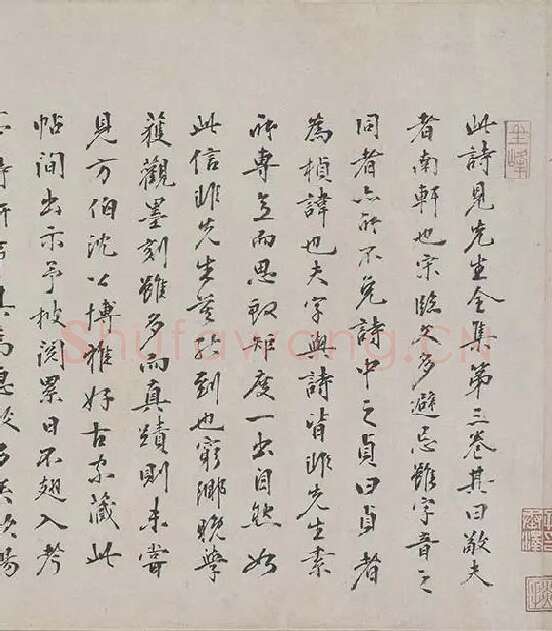 此詩見先生全集第三卷其曰敬夫
者南軒也宋臨文多避忌雖字音之
同者亦所不免詩中之貞曰貞者
為楨諱也夫字與詩皆非先生素
所專意而思致矩度一出自然如
此信非先生莫能到也窮鄉晚學
獲觀墨刻雖多而真蹟則未嘗
見方伯沈公博雅好古家藏此
帖間出示予披閱累日不翅入考
Shufawang.CN